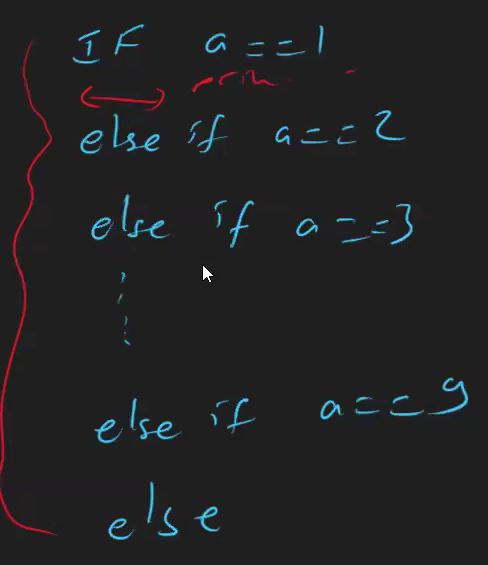 IF a==1
else if a==2
else if a==3
else if a==9
else